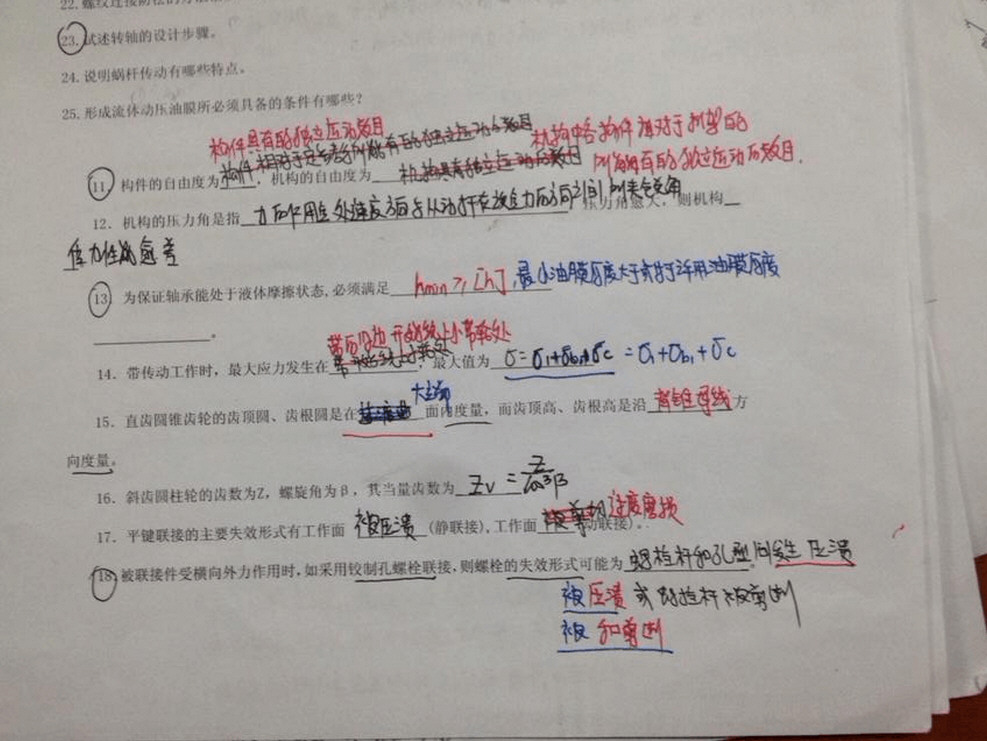 22.螺纹连接防松的
23.试述转轴的设计步骤。
24.说明蜗杆传动有哪些特点。
25.形成流体动压油膜所必须具备的条件有哪些?
构件具有的独立运动数目
机构中各构件相对于机架的
所能有的独立运动的数目.
11. 构件的自由度为 ,机构的自由度为 机构具有独立运动的数目
12. 机构的压力角是指 力的作用点处速度方向与从动杆 力的方向之间所夹锐角 压力角愈大,则机构
传力性能愈差
13. 为保证轴承能处于液体摩擦状态,必须满足 hmin≥[h],最小油膜厚度大于或等于许用油膜厚度
。
带的紧边开始绕上小带轮处
14. 带传动工作时,最大应力发生在 ,最大值为 σ=σ1+σb1+σc =σ1+σb1+σc
大端
15. 直齿圆锥齿轮的齿顶圆、齿根圆是在 面内度量,而齿顶高、齿根高是沿 背锥母线 方
向度量。
16. 斜齿圆柱轮的齿数为Z,螺旋角为β,其当量齿数为 Zv=Z/cos³β
17. 平键联接的主要失效形式有工作面 被压溃 (静联接),工作面 过度磨损 (动联接)。
18.被联接件受横向外力作用时,如采用铰制孔螺栓联接,则螺栓的失效形式可能为 螺栓杆和孔壁间发生压溃
被压溃 或 螺栓杆被剪断
被 和剪断